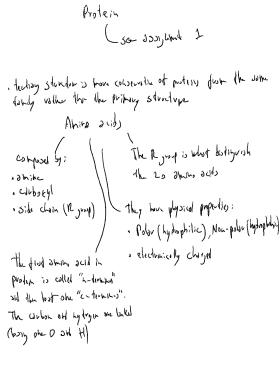 Protein
see assignment 1
• tertiary structure is more conservative of proteins from the same
family rather than the primary structure
Amino acids
composed by:
• amine
• carboxyl
• side chain (R group)
The R group is what distinguish
the 20 amino acids
They have physical properties:
• Polar (hydrophilic), Non-polar (hydrophobic)
• electronically charged
The first amino acid in
protein is called "n-terminus"
and the last one "c-terminus".
The carbon and nitrogen are linked
(losing one O and H)